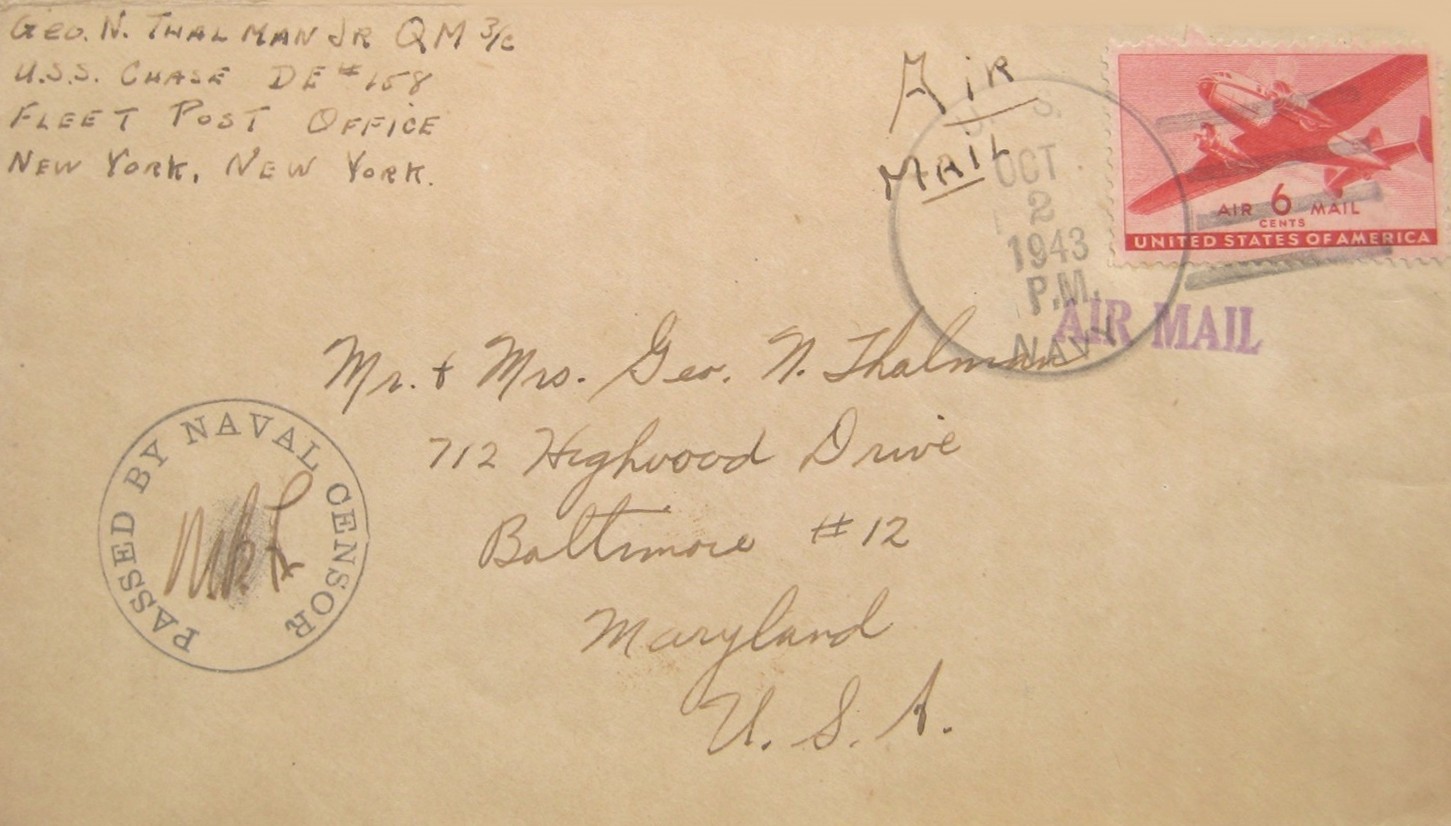 GEO. N. THALMAN JR QM 3/C
U.S.S. CHASE DE #158
FLEET POST OFFICE
NEW YORK, NEW YORK.
AIR
MAIL
U. S.
OCT
2
1943
P.M.
NAVY
AIR 6 MAIL
CENTS
UNITED STATES OF AMERICA
AIR MAIL
Mr. + Mrs. Geo. N. Thalman
712 Highwood Drive
Baltimore #12
Maryland
U. S. A.
PASSED BY NAVAL CENSOR